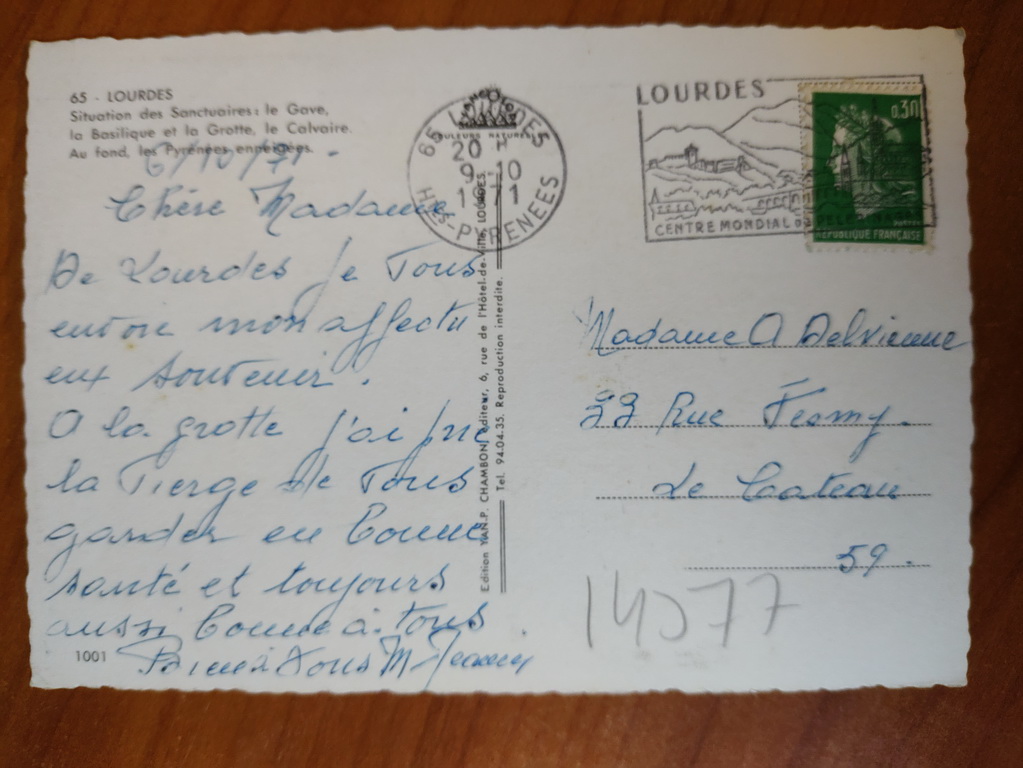 65 - LOURDES
Situation des Sanctuaires : le Gave,
la Basilique et la Grotte, le Calvaire.
Au fond, les Pyrénées enneigées.
Chère Madame
De Lourdes je Vous
envoie mon affectu
eux souvenir.
A la grotte j'ai prié
la Vierge de Vous
garder en bonne
santé et toujours
aussi bonne à Vous
1001
65 LOURDES
20 H
9-10
1971
Htes-PYRENEES
COULEURS NATURELLES
Edition P. CHAMBON, éditeur, 6, rue de l'Hôtel-de-Ville, LOURDES.
Tel. 94.04.35. Reproduction interdite.
LOURDES
CENTRE MONDIAL
0,30
REPUBLIQUE FRANÇAISE
Madame A Delvienne
33 Rue Fesmy.
Le Cateau
59.
14577